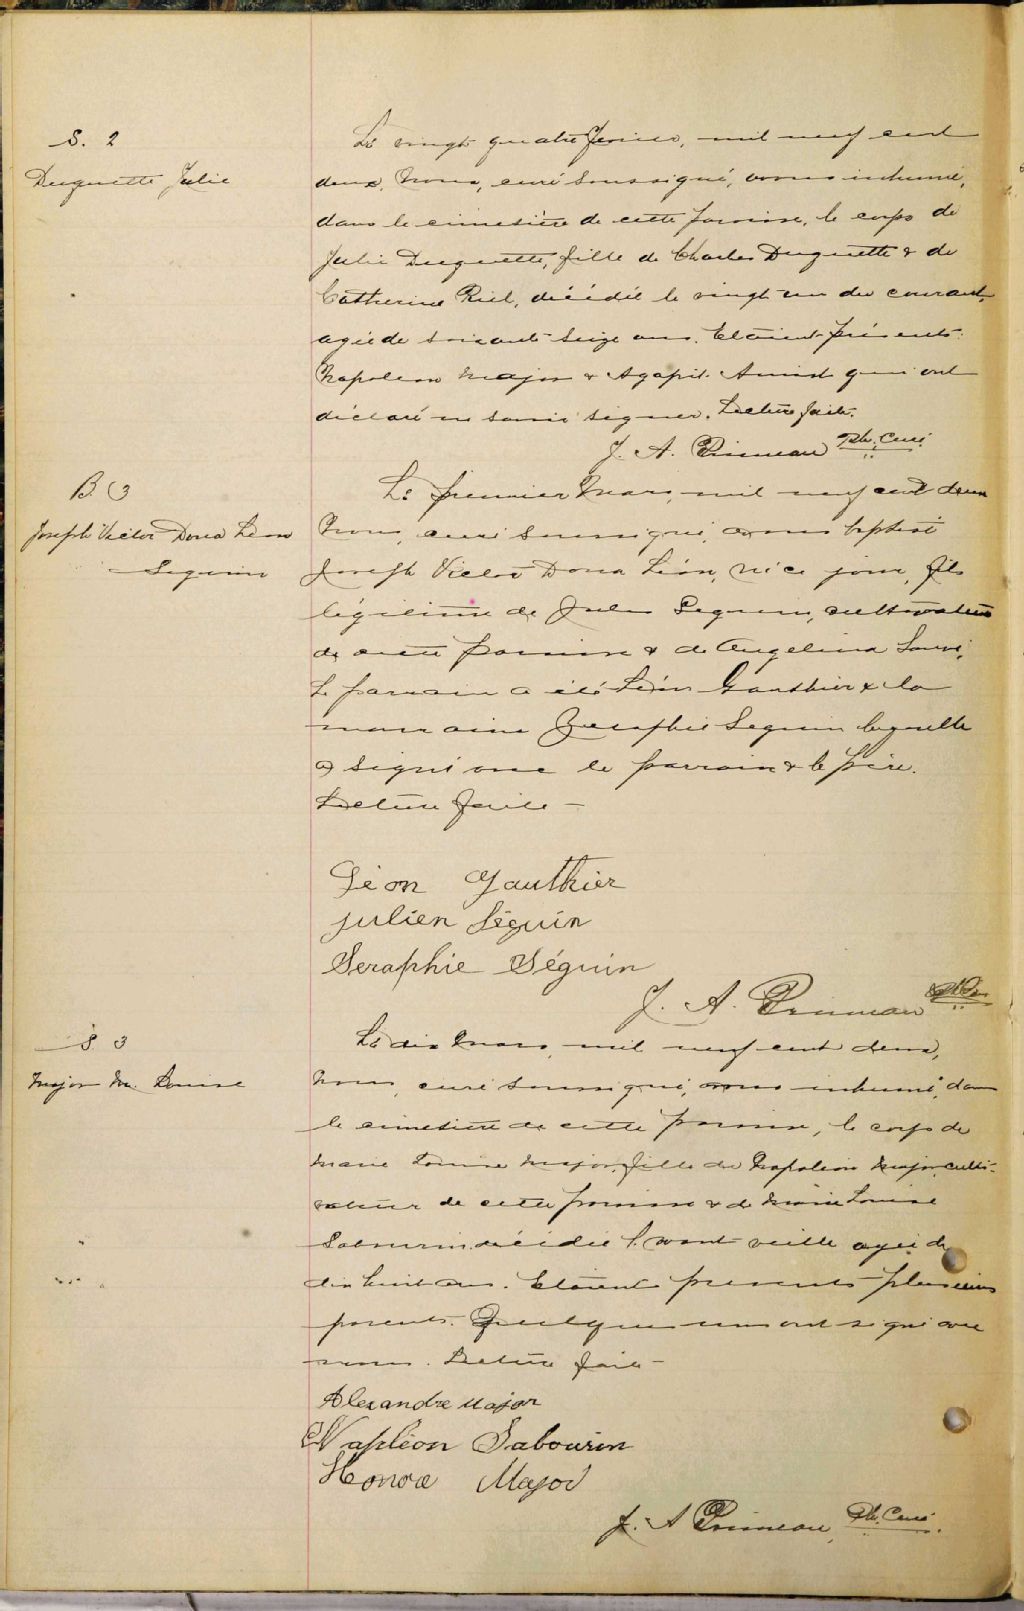 S. 2
Duquette Julie
Le vingt quatre Février, mil neuf cent
deux, Nous, curé soussigné, avons inhumé,
dans le cimetière de cette paroisse, le corps de
Julie Duquette, fille de Charles Duquette & de
Catherine Riel, décédée le vingt un du courant,
agée de soixante seize ans. Etaient présents:
Napoleon Major & Agapit qui ont
déclaré ne savoir signer. Lecture faite.
J. A. Primeau Ptr. Curé
B. 3
Joseph Victor Dona Léon
Seguin
Le premier Mars, mil neuf cent deux
Nous, curé soussigné, avons baptisé
Joseph Victor Dona Léon, né ce jour, fils
légitime de Seguin, cultivateur
de cette paroisse & de Angelina Sauvé.
Le parrain a été Léon Gauthier & la
marraine Seraphie Seguin laquelle
a signé avec le parrain & le père.
Lecture faite —
Léon Gauthier
Julien Séguin
Seraphie Séguin
J. A. Primeau
S. 3
Major M. Louise
Le dix Mars, mil neuf cent deux,
Nous, curé soussigné, avons inhumé, dans
le cimetière de cette paroisse, le corps de
Marie Louise Major, fille de Napoléon Major, culti-
vateur de cette paroisse & de Marie Louise
Sabourin, décédée l'avant veille agée de
dix huit ans. Etaient présents plusieurs
parents. Quelques uns ont signé avec
nous. Lecture faite —
Alexandre Major
Napléon Sabourin
Major
J. A Primeau, Ptr. Curé.